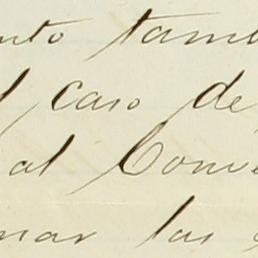 nto tamb
l caso de
al Conve
mar las